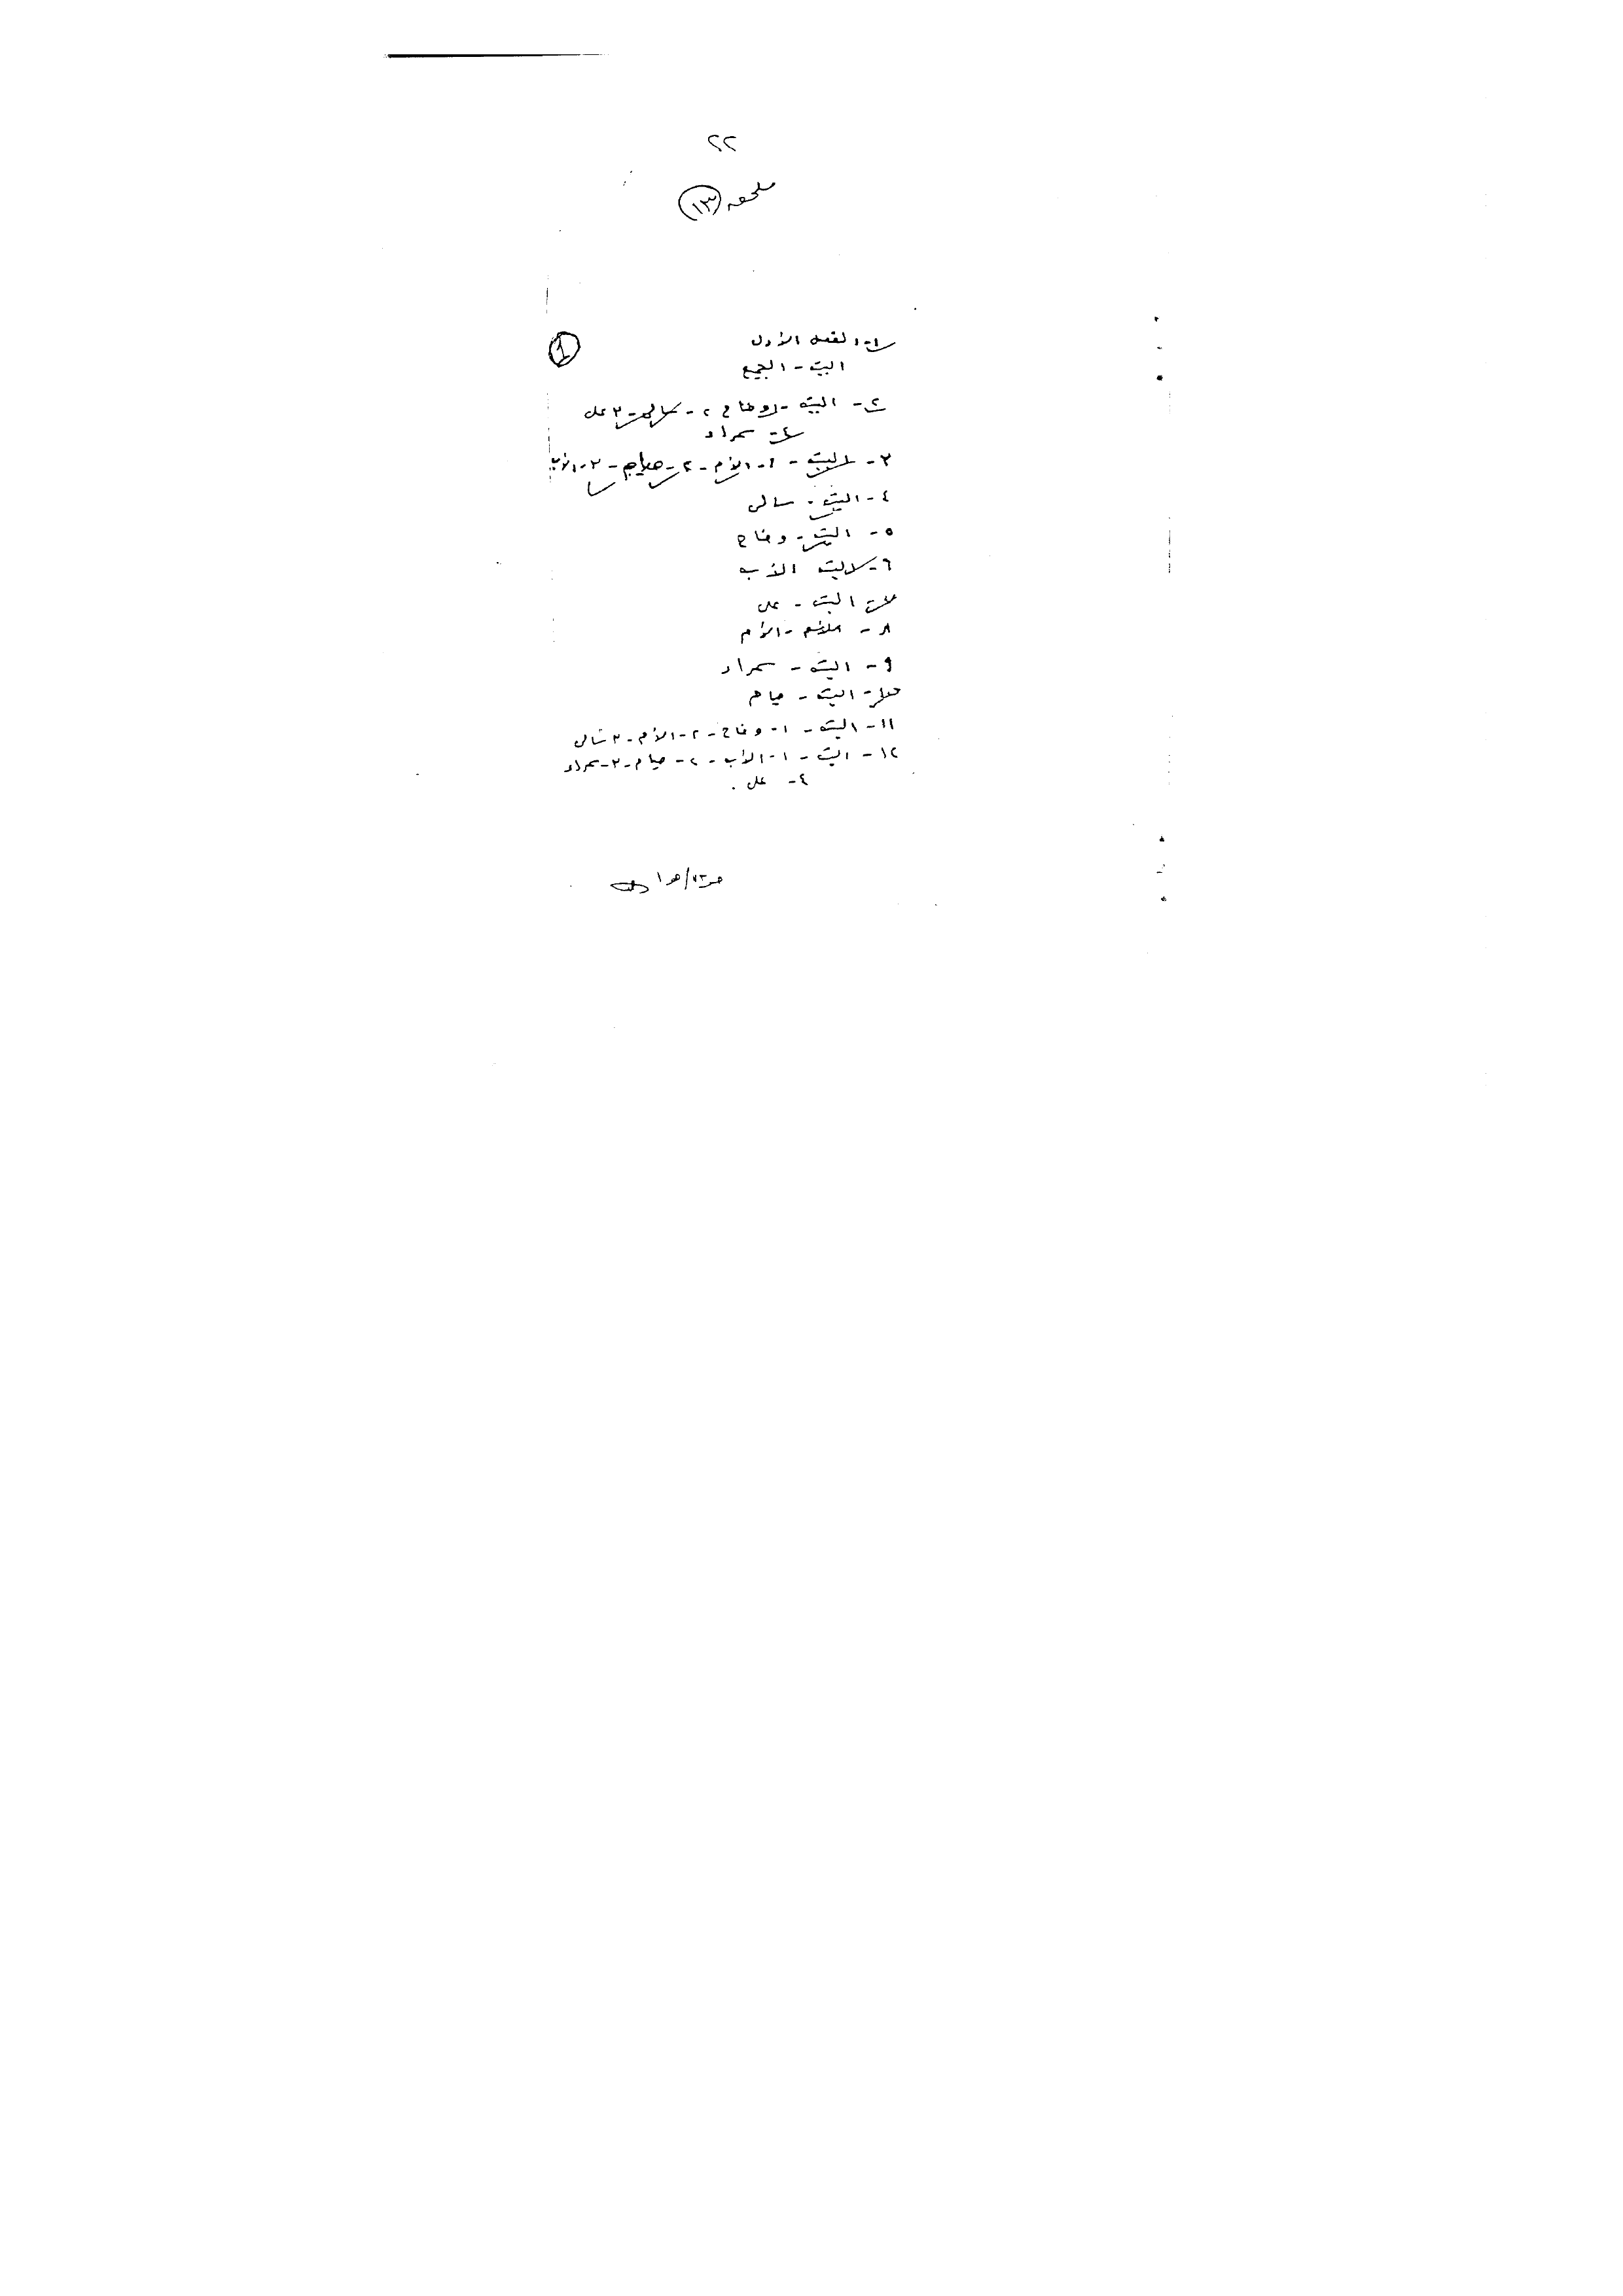 ٢٢
ملحق (١٣)
١- الفصل الأول
①
البيت - الجميع
٢- البيت - ١ وضاح ٢ - سالى - ٣ على
٤- سمراء
٣- البيت - ١ - الأم - ٢ - هيام - ٣ - الأب
٤- البيت - سالى
٥- البيت - وضاح
٦- البيت الأب
٧- البيت - على
٨- - الأم
٩- البيت - سمراء
١٠- البيت - هيام
١١- البيت - ١ - وضاح - ٢ - الأم - ٣ سالى
١٢- البيت - ١ - الأب - ٢ - هيام - ٣ - سمراء
٤- على .